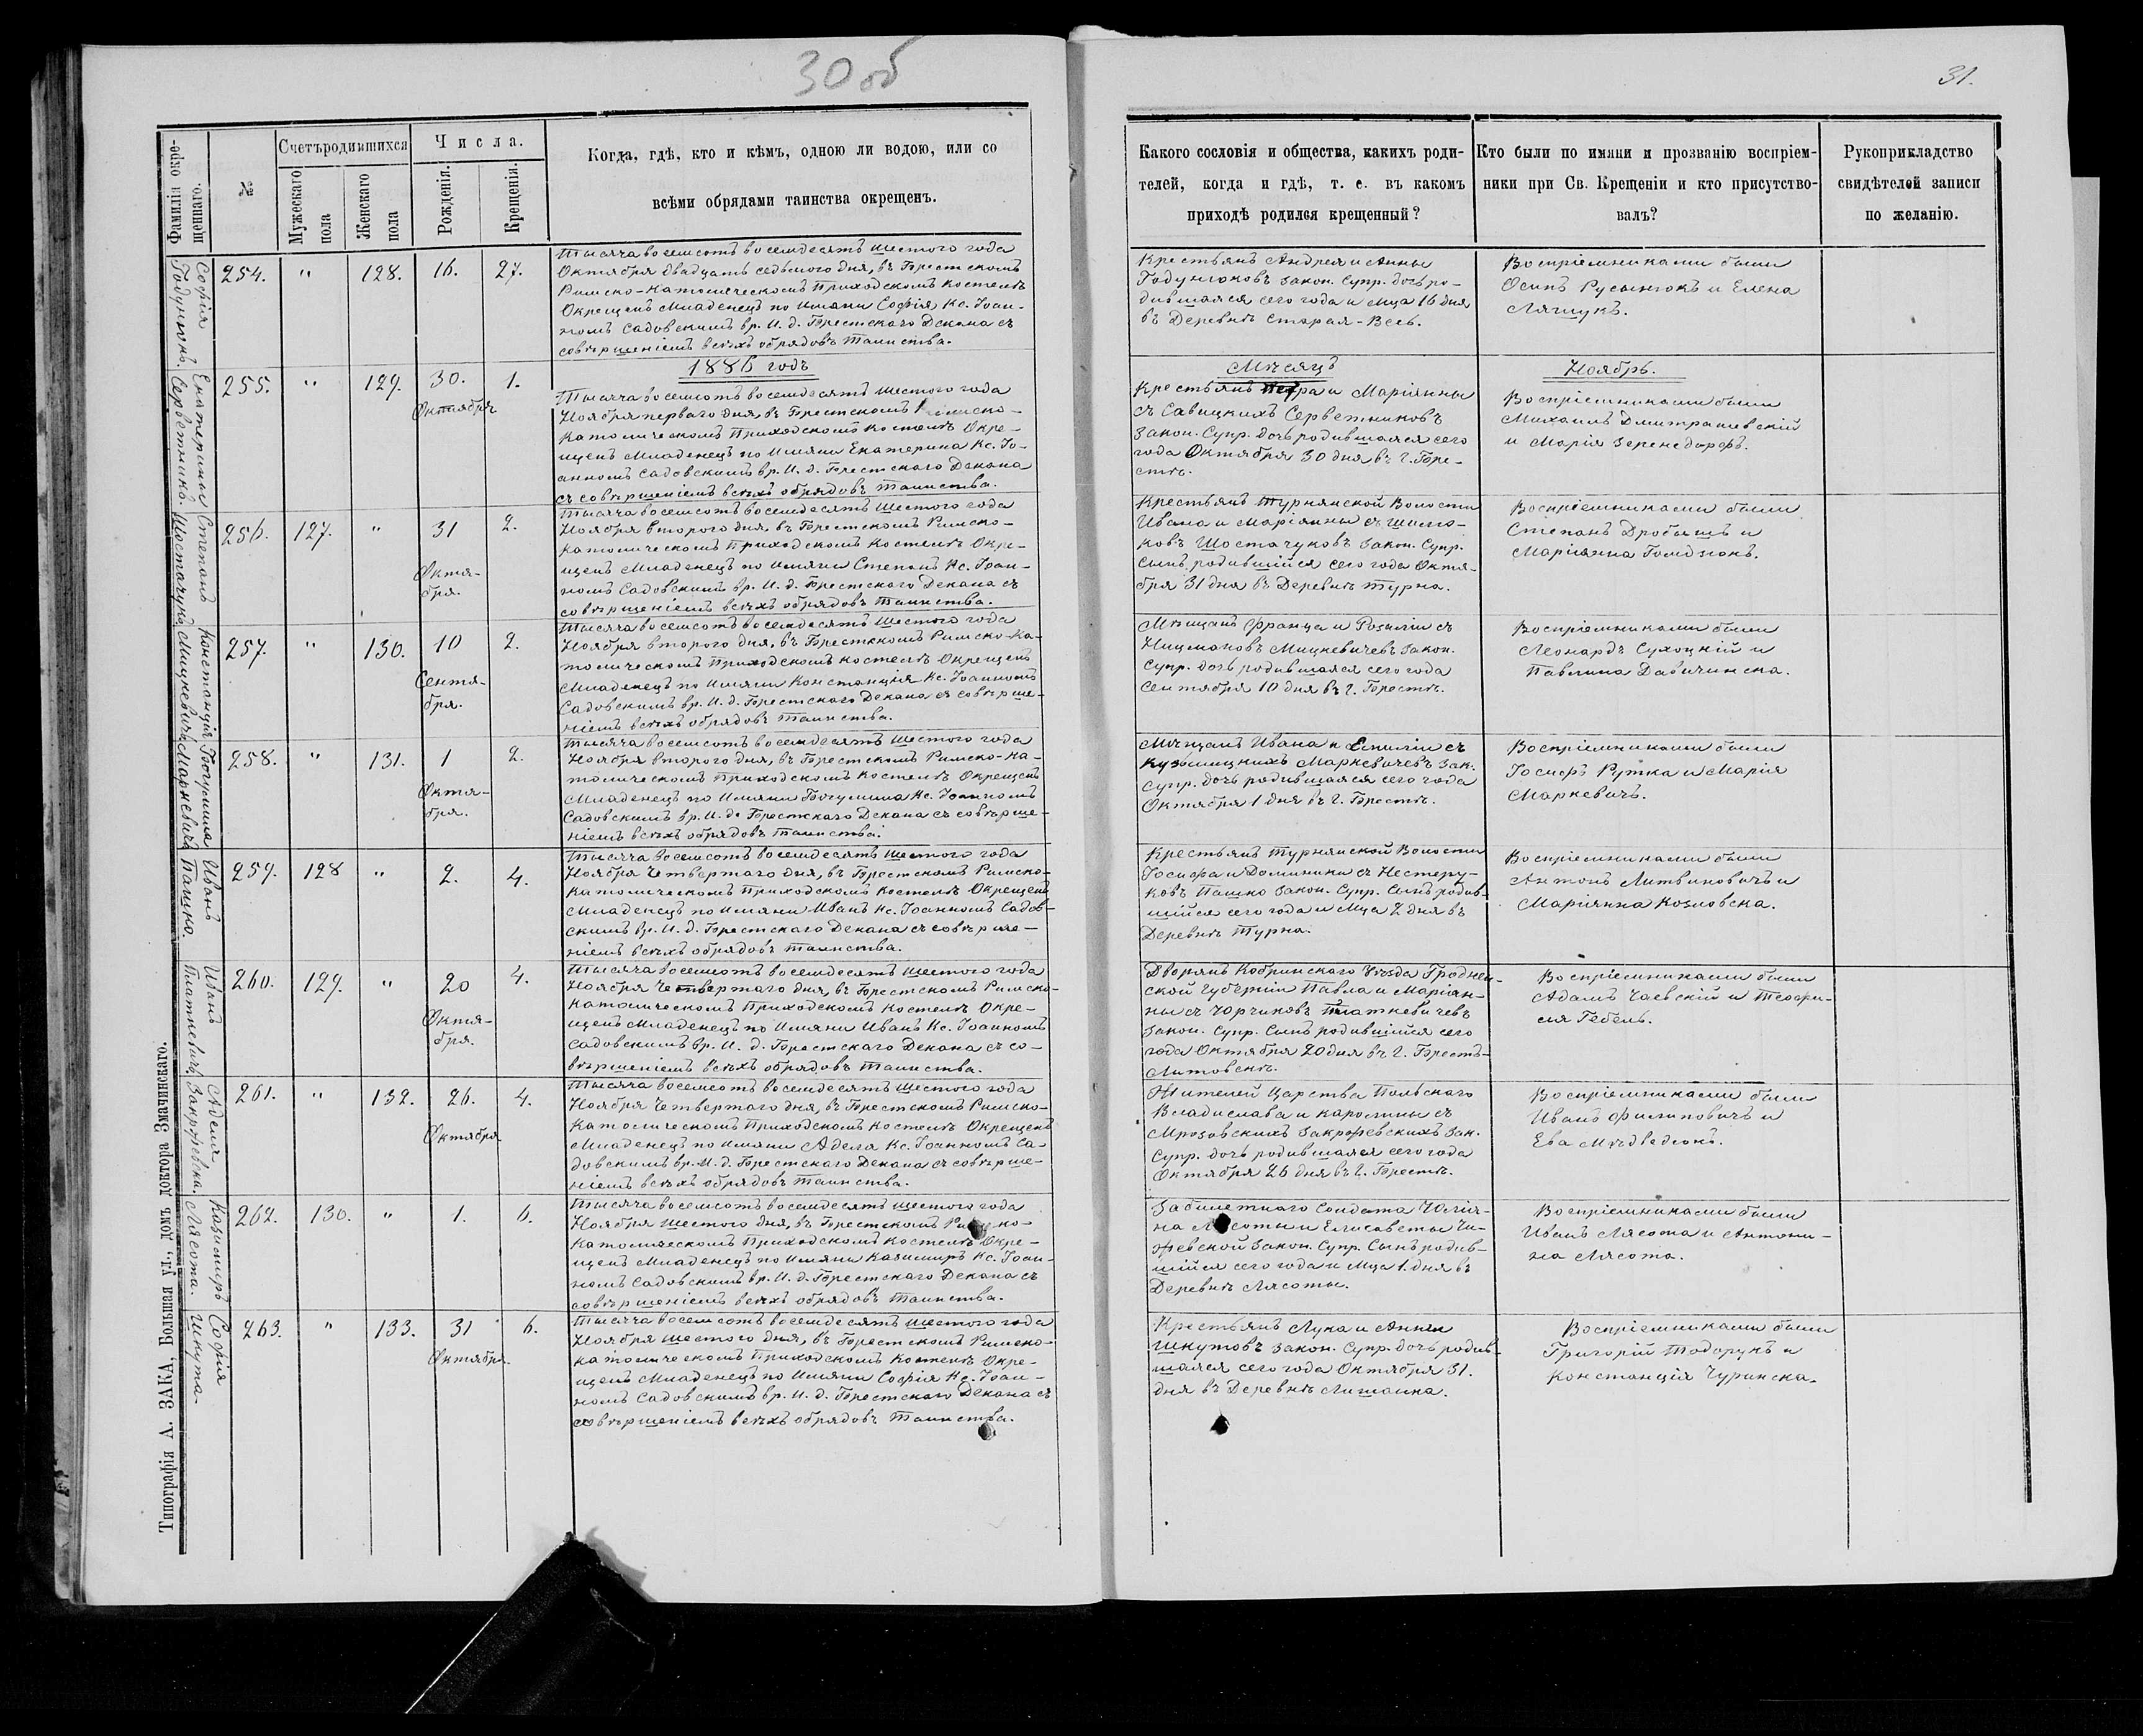 30 об
31.
Фамилія окре-
щеннаго.
№
Счетъ родившихся
Мужескаго
пола
Женскаго
пола
Числа.
Рожденія.
Крещенія.
Когда, гдѣ, кто и кѣмъ, одною ли водою, или со
всѣми обрядами таинства окрещенъ.
Какого сословія и общества, какихъ роди-
телей, когда и гдѣ, т. е. въ какомъ
приходѣ родился крещенный?
Кто были по имяни и прозванію воспріем-
ники при Св. Крещеніи и кто присутство-
валъ?
Рукоприкладство
свидѣтелей записи
по желанію.
Софія
Годунюкъ.
254.
"
128.
16.
27.
Тысяча восемсотъ восемдесятъ шестого года
Октября двадцать седьмого дня, въ Брестскомъ
Римско-Католическомъ Приходскомъ Костелѣ
Окрещенъ Младенецъ по Имяни Софія Кс. Іоан-
номъ Садовскимъ вр. И. д. Брестскаго Декана съ
совершеніемъ всѣхъ обрядовъ Таинства.
Крестьянъ Андрея и Анны
Годунюковъ закон. Супр. дочь ро-
дившаяся сего года и Мца 16 дня
въ Деревнѣ Старая-Весь.
Воспріемниками были
Осипъ Русынюкъ и Елена
Лящукъ.
1886 годъ
Мѣсяцъ
Ноябрь.
Екатерина
Серветникъ.
255.
"
129.
30.
Октября
1.
Тысяча восемсотъ восемдесятъ шестого года
Ноября перваго дня, въ Брестскомъ Римско-
Католическомъ Приходскомъ Костелѣ Окре-
щенъ Младенецъ по Имяни Екатерина Кс. Іо-
анномъ Садовскимъ вр. И. д. Брестскаго Декана
съ совершеніемъ всѣхъ обрядовъ Таинства.
Крестьянъ Петра и Маріянны
съ Савицкихъ Серветниковъ
Закон. Супр. дочь родившаяся сего
года Октября 30 дня въ г. Бре-
стѣ.
Воспріемниками были
Михаилъ Дмитрашевскій
и Марія Зеренедорфъ.
Степанъ
Шостачукъ.
256.
127.
"
31
Октя-
бря.
2.
Тысяча восемсотъ восемдесятъ шестого года
Ноября второго дня, въ Брестскомъ Римско-
Католическомъ Приходскомъ Костелѣ Окре-
щенъ Младенецъ по Имяни Степанъ Кс. Іоан-
номъ Садовскимъ вр. И. д. Брестскаго Декана съ
совершеніемъ всѣхъ обрядовъ Таинства.
Крестьянъ Турнянской Волости
Ивана и Маріянны съ
Шостачуковъ Закон. Супр.
Сынъ, родившійся сего года Октя-
бря 31 дня въ Деревнѣ Турна.
Воспріемниками были
Степанъ Дробышъ и
Маріянна Гомдзюкъ.
Констанція
Мицкевичъ.
257.
"
130.
10
Сентя-
бря.
2.
Тысяча восемсотъ восемдесятъ шестого года
Ноября второго дня, въ Брестскомъ Римско-Ка-
толическомъ Приходскомъ Костелѣ Окрещенъ
Младенецъ по Имяни Констанція Кс. Іоанномъ
Садовскимъ вр. И. д. Брестскаго Декана съ соверше-
ніемъ всѣхъ обрядовъ Таинства.
Мѣщанъ Франца и Розаліи съ
Ницмановъ Мицкевичевъ Закон.
Супр. дочь родившаяся сего года
Сентября 10 дня въ г. Брестѣ.
Воспріемниками были
Леонардъ Сухоцкій и
Павлина Давичинска.
Богумила
Маркевичъ.
258.
"
131.
1
Октя-
бря.
2.
Тысяча восемсотъ восемдесятъ шестого года
Ноября второго дня, въ Брестскомъ Римско-Ка-
толическомъ Приходскомъ Костелѣ Окрещенъ
Младенецъ по Имяни Богумила Кс. Іоанномъ
Садовскимъ вр. И. д. Брестскаго Декана съ соверше-
ніемъ всѣхъ обрядовъ Таинства.
Мѣщанъ Ивана и Емиліи съ
Кузьмицкихъ Маркевичевъ Зак.
Супр. дочь родившаяся сего года
Октября 1 дня въ г. Брестѣ.
Воспріемниками были
Іосифъ Рутка и Марія
Маркевичъ.
Иванъ
Пашко.
259.
128
"
2.
4.
Тысяча восемсотъ восемдесятъ шестого года
Ноября Четвертаго дня, въ Брестскомъ Римско-
Католическомъ Приходскомъ Костелѣ Окрещенъ
Младенецъ по Имяни Иванъ Кс. Іоанномъ Садов-
скимъ вр. И. д. Брестскаго Декана съ соверше-
ніемъ всѣхъ обрядовъ Таинства.
Крестьянъ Турнянской Волости
Іосифа и Доминики съ Нестеру-
ковъ Пашко Закон. Супр. Сынъ родив-
шійся сего года и Мца 2 дня въ
Деревнѣ Турна.
Воспріемниками были
Антонъ Литвиновичъ и
Маріянна Козловска.
Иванъ
Платкевичъ.
260.
129.
"
20
Октя-
бря.
4.
Тысяча восемсотъ восемдесятъ шестого года
Ноября Четвертаго дня, въ Брестскомъ Римско-
Католическомъ Приходскомъ Костелѣ Окре-
щенъ Младенецъ по Имяни Иванъ Кс. Іоанномъ
Садовскимъ вр. И. д. Брестскаго Декана съ со-
вершеніемъ всѣхъ обрядовъ Таинства.
Дворянъ Кобринскаго Уѣзда Гроднен-
ской Губерніи Павла и Маріян-
ны съ Юрчиковъ Платкевичевъ
Закон. Супр. Сынъ родившійся сего
года Октября 20 дня въ г. Брестъ-
Литовскѣ.
Воспріемниками были
Адамъ Чаевскій и Теофи-
ля Гебель.
Аделя
Закрфевска.
261.
"
132.
26.
Октября
4.
Тысяча восемсотъ восемдесятъ шестого года
Ноября Четвертаго дня, въ Брестскомъ Римско-
Католическомъ Приходскомъ Костелѣ Окрещенъ
Младенецъ по Имяни Аделя Кс. Іоанномъ Са-
довскимъ вр. И. д. Брестскаго Декана съ соверше-
ніемъ всѣхъ обрядовъ Таинства.
Жителей Царства Польскаго
Владислава и Каролины съ
Мрозовскихъ Закрофевскихъ Зак.
Супр. дочь родившаяся сего года
Октября 26 дня въ г. Брестѣ.
Воспріемниками были
Иванъ Филиповичъ и
Ева Мѣдведюкъ.
Казимиръ
Лясота.
262.
130.
"
1.
6.
Тысяча восемсотъ восемдесятъ шестого года
Ноября шестого дня, въ Брестскомъ Римско-
Католическомъ Приходскомъ Костелѣ Окре-
щенъ Младенецъ по Имяни Казимиръ Кс. Іоан-
номъ Садовскимъ вр. И. д. Брестскаго Декана съ
совершеніемъ всѣхъ обрядовъ Таинства.
Забилетнаго Солдата Юлія-
на Лясоты и Елисаветы Чи-
жевской Закон. Супр. Сынъ родив-
шійся сего года и Мца 1. дня въ
Деревнѣ Лясоты.
Воспріемниками были
Иванъ Лясота и Антони-
на Лясота.
Софія
Шкута.
263.
"
133.
31
Октября.
6.
Тысяча восемсотъ восемдесятъ шестого года
Ноября шестого дня, въ Брестскомъ Римско-
Католическомъ Приходскомъ Костелѣ Окре-
щенъ Младенецъ по Имяни Софія Кс. Іоан-
номъ Садовскимъ вр. И. д. Брестскаго Декана съ
совершеніемъ всѣхъ обрядовъ Таинства.
Крестьянъ Лука и Анны
Шкутовъ Закон. Супр. дочь родив-
шаяся сего года Октября 31.
дня въ Деревнѣ
Воспріемниками были
Григорій Тодорукъ и
Констанція Чуринска.
Типографія А. ЗАКА, Большая ул., домъ доктора Змачинскаго.